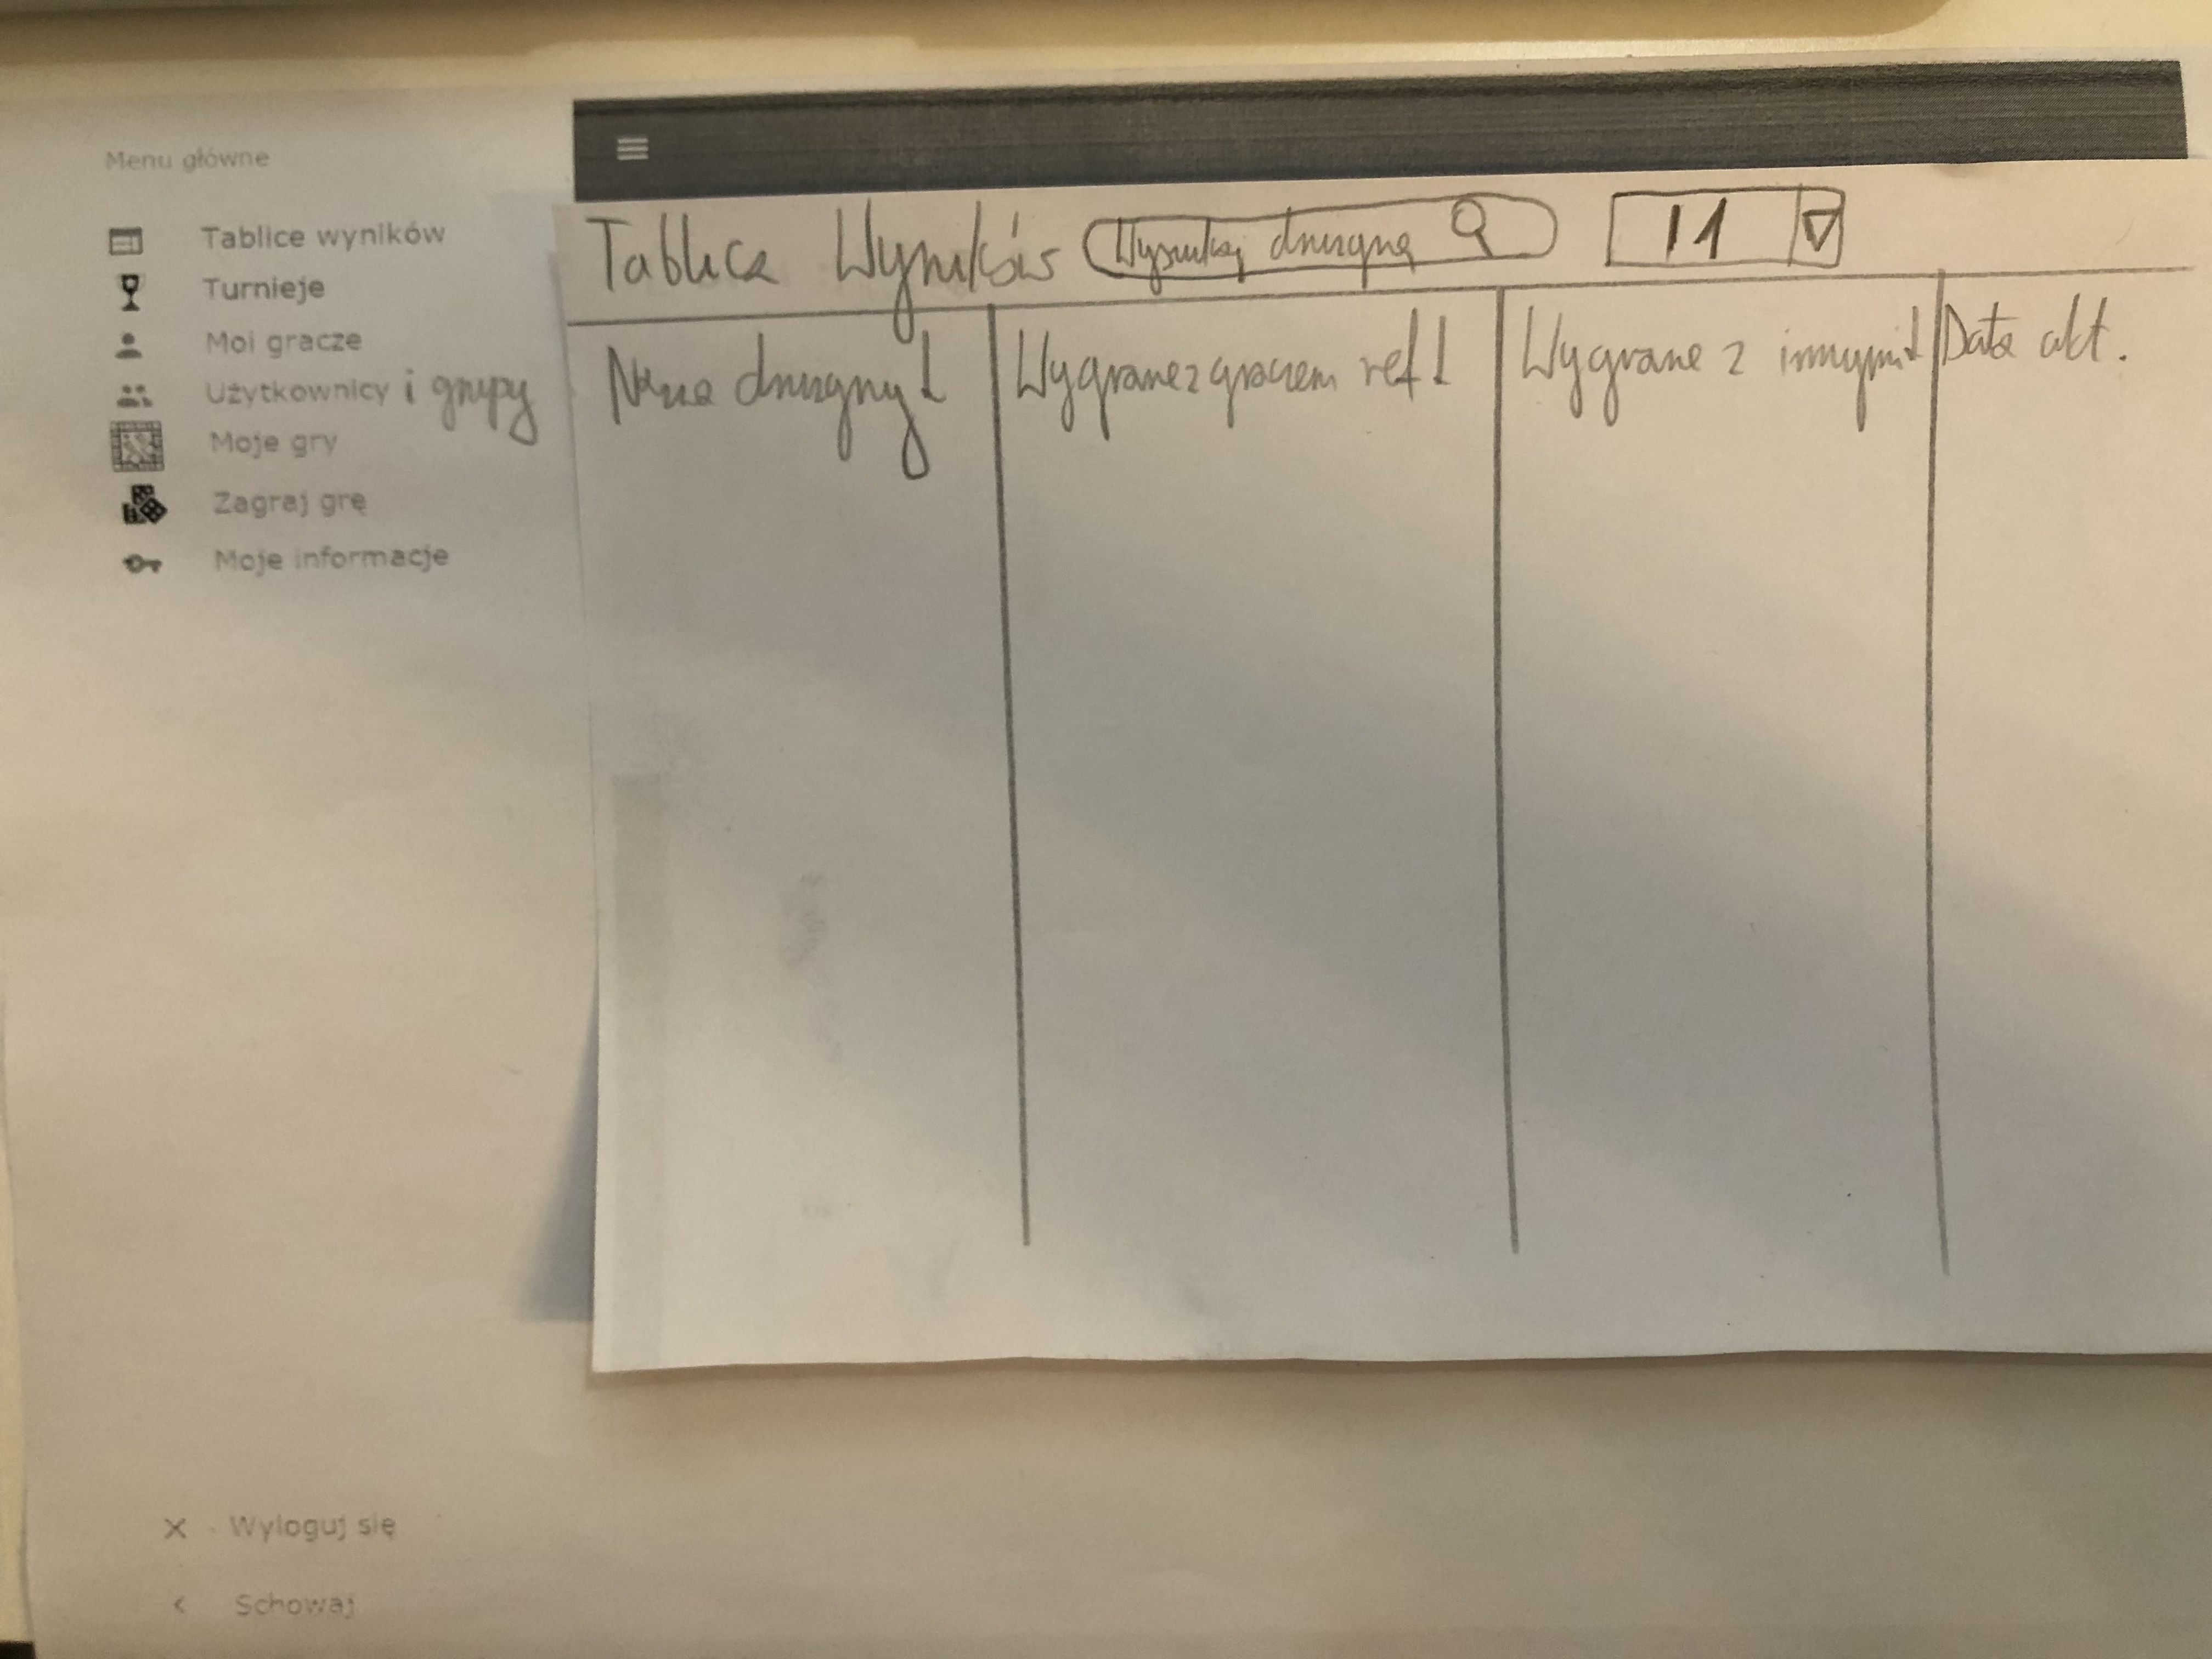 Menu główne
Tablice wyników
Turnieje
Moi gracze
Użytkownicy i grupy
Moje gry
Zagraj grę
Moje informacje
Wyloguj się
Schowaj
Tablica Wyników
Wyszukaj drużynę
11
Nazwa drużyny ↓
Wygrane z graczem ref ↓
Wygrane z innymi ↓
Data akt.